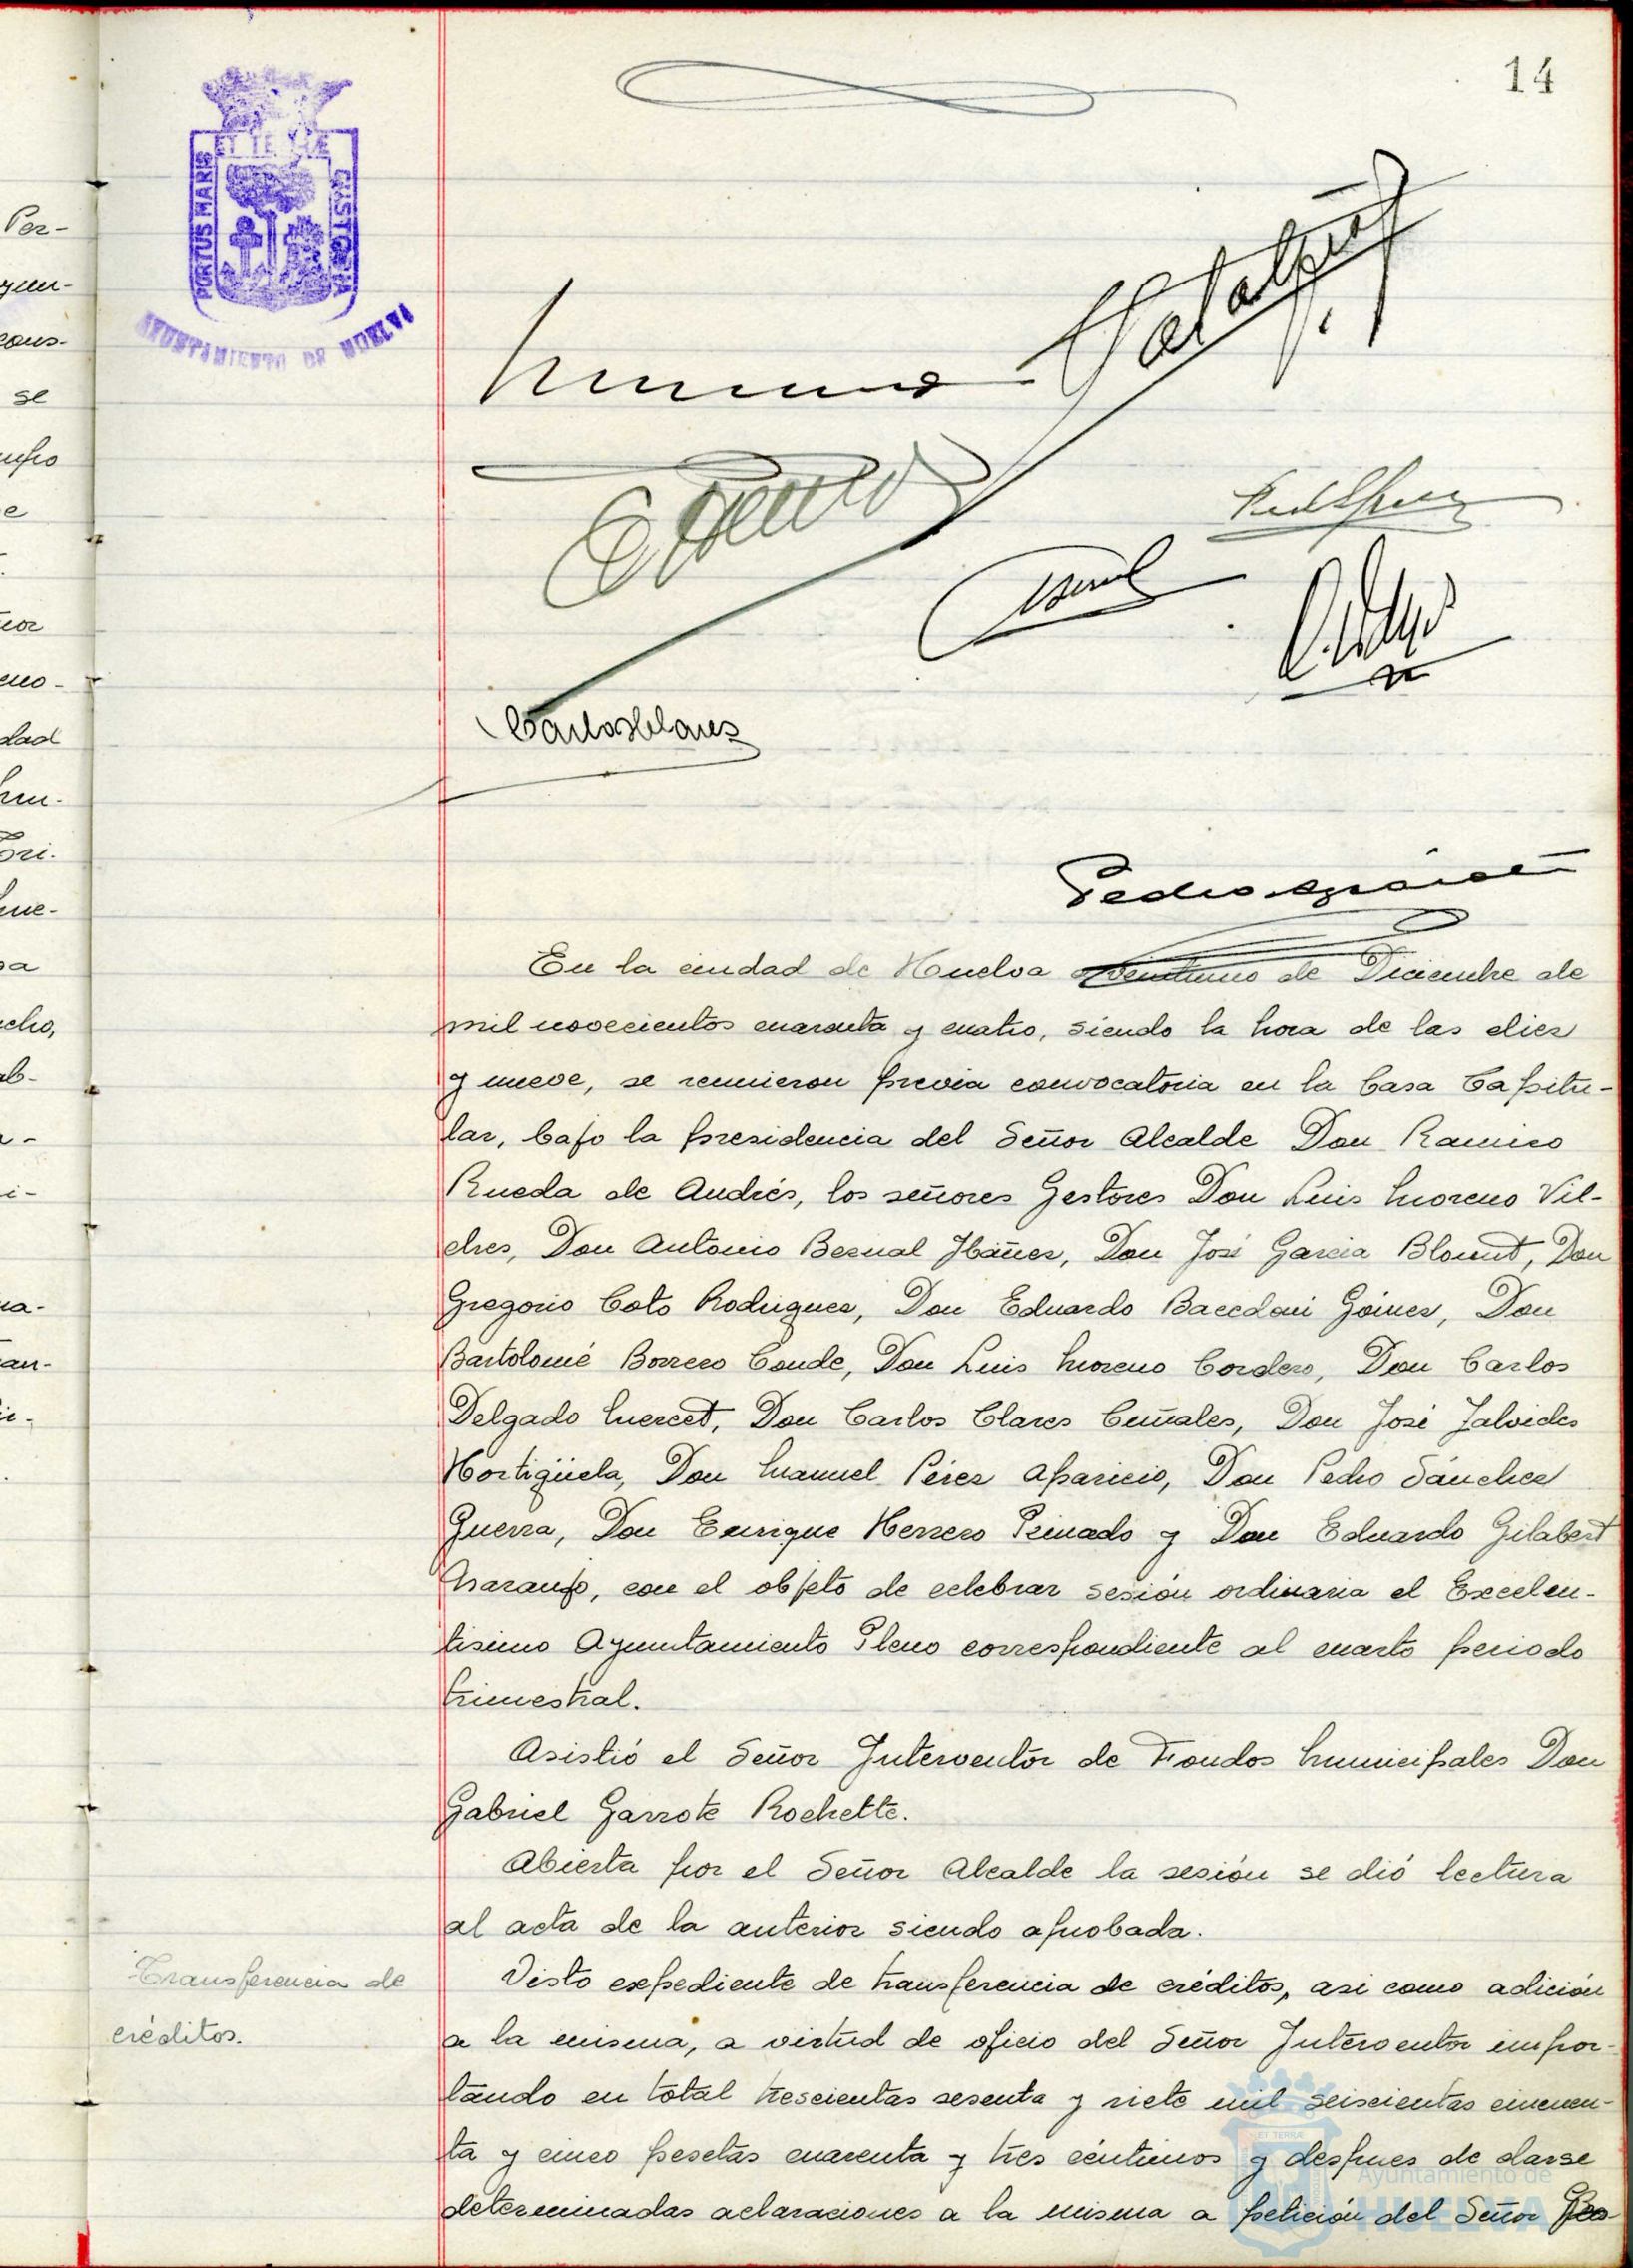 14
PORTUS MARIS
ET TERRÆ
CUSTODIA
AYUNTAMIENTO DE HUELVA
Per-
yun-
cons-
se
e
dad
ori.
cho,
ab-
an-
Carlos Clares
En la ciudad de Huelva a veintiuno de Diciembre de
mil novecientos cuarenta y cuatro, siendo la hora de las diez
y nueve, se reunieron previa convocatoria en la Casa Capitu-
lar, bajo la presidencia del Señor Alcalde Don Ramiro
Rueda de Andrés, los señores Gestores Don Luis Moreno Vil-
ches, Don Antonio Bernal Ibáñez, Don José Garcia Blount, Don
Gregorio Coto Rodriguez, Don Eduardo Baccdoni Gómez, Don
Bartolomé Borrero Conde, Don Luis Moreno Cordero, Don Carlos
Delgado Mercet, Don Carlos Clares Cuñales, Don José Jalvides
Hortigüela, Don Manuel Pérez Aparicio, Don Pedro Sánchez
Guerra, Don Enrique Herrero Peinado y Don Eduardo Gilabert
Naranjo, con el objeto de celebrar sesión ordinaria el Excelen-
tisimo Ayuntamiento Pleno correspondiente al cuarto periodo
trimestral.
Asistió el Señor Interventor de Fondos Municipales Don
Gabriel Garrote Rochette.
Abierta por el Señor Alcalde la sesión se dió lectura
al acta de la anterior siendo aprobada.
Transferencia de
créditos.
Visto expediente de transferencia de créditos, asi como adición
a la misma, a virtud de oficio del Señor Interventor impor-
tando en total trescientas sesenta y siete mil seiscientas cincuen-
ta y cinco pesetas cuarenta y tres céntimos y despues de darse
determinadas aclaraciones a la misma a petición del Señor
Ayuntamiento de
HUELVA